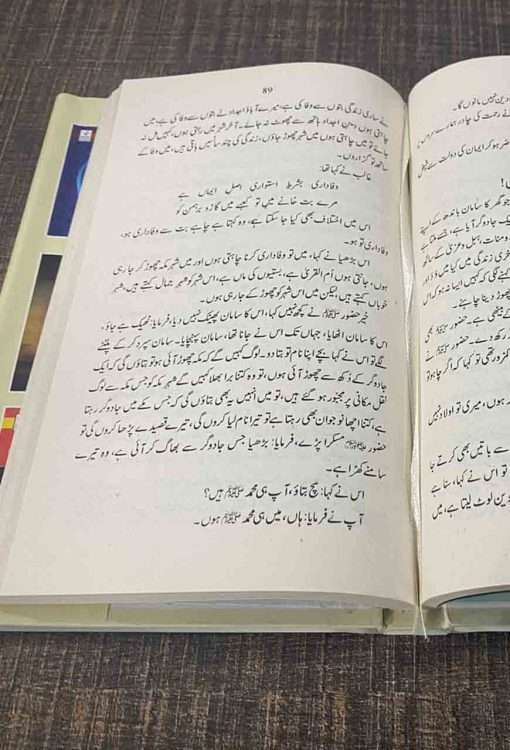 89
نے ساری زندگی بتوں سے وفا کی ہے، میرے آباؤ اجداد نے بتوں سے وفا کی ہے، میں
چاہتی ہوں دین اجداد ہاتھ سے چھوٹ نہ جائے۔ آخر شہر میں رہتی ہوں، کہیں مل نہ
جائے تو میں چاہتی ہوں میں شہر چھوڑ جاؤں، زندگی کی چند سانسیں باقی ہیں، میں وفا کے
ساتھ تو گزاروں۔
غالب نے کہا تھا:
وفاداری بشرط استواری اصل ایماں ہے
مرے بت خانے میں تو کعبے میں گاڑو برہمن کو
اس میں اختلاف بھی کیا جا سکتا ہے، وہ کہتا ہے چاہے بت سے وفاداری ہو،
وفاداری تو ہو۔
اس بڑھیا نے کہا، میں تو وفاداری کرنا چاہتی ہوں اور میں شہر مکہ چھوڑ کر جا رہی
ہوں، جانتی ہوں اُم القریٰ ہے، بستیوں کی ماں ہے، اس شہر کو شہر جمال کہتے ہیں، شہر
خوباں کہتے ہیں، لیکن میں اس شہر کو چھوڑ کے جا رہی ہوں۔
خیر حضور ﷺ نے کچھ نہیں کہا، اس کا سامان پھینک نہیں دیا، فرمایا: ٹھیک ہے جاؤ،
اس کا سامان اٹھایا، جہاں تک اس نے جانا تھا، سامان پہنچایا۔ سامان سپرد کر کے پلٹنے
لگے تو اس نے کہا بچے اپنا نام تو بتا دو۔ لوگ کہیں گے کہ مکہ چھوڑ آئی ہو تو بتاؤں گی کہ ایک
جادوگر کے دُکھ سے چھوڑ آئی ہوں، تو وہ کتنا برا بھلا کہیں گے شہر مکہ کو جس مکہ سے لوگ
نقل مکانی پر مجبور ہو گئے ہیں، تو میں انہیں یہ بھی بتاؤں گی کہ جس مکے میں جادوگر رہتا
ہے، کتنا اچھا نوجوان بھی رہتا ہے تو تیرا نام لیا کروں گی، تیرے قصیدے پڑھا کروں گی تو
حضور ﷺ مسکرا پڑے، فرمایا: بڑھیا جس جادوگر سے بھاگ کر آئی ہے، وہ تیرے
سامنے کھڑا ہے۔
اس نے کہا: سچ بتاؤ، آپ ہی محمد ﷺ ہیں؟
آپ نے فرمایا: ہاں، میں ہی محمد ﷺ ہوں۔
دین نہیں مانوں گا۔
نے رحمت کی چادر ہمارے سروں
ہو کر ایمان کی دولت سے فیض
گھر کا سامان باندھ کے اپنے
جادوگر آیا ہے، جسے ملتا ہے
و منات، ہبل و عزیٰ کے ساتھ
آخری زندگی میں کیا میں ڈر اور
لگی کہ کہیں ایسا نہ ہو کہ اس
چھوڑ دینا چاہئے۔
کے بیٹھی ہے۔ حضور ﷺ بھی
رکھ دے۔ حضور ﷺ نے
کمزور تھی تو کہا کہ اگر چاہو تو
ہوں، میری تو اولاد نہیں
سے باتیں بھی کرتے جا
تو اس نے کہا، سنا ہے
دین لوٹ لیتا ہے، میں